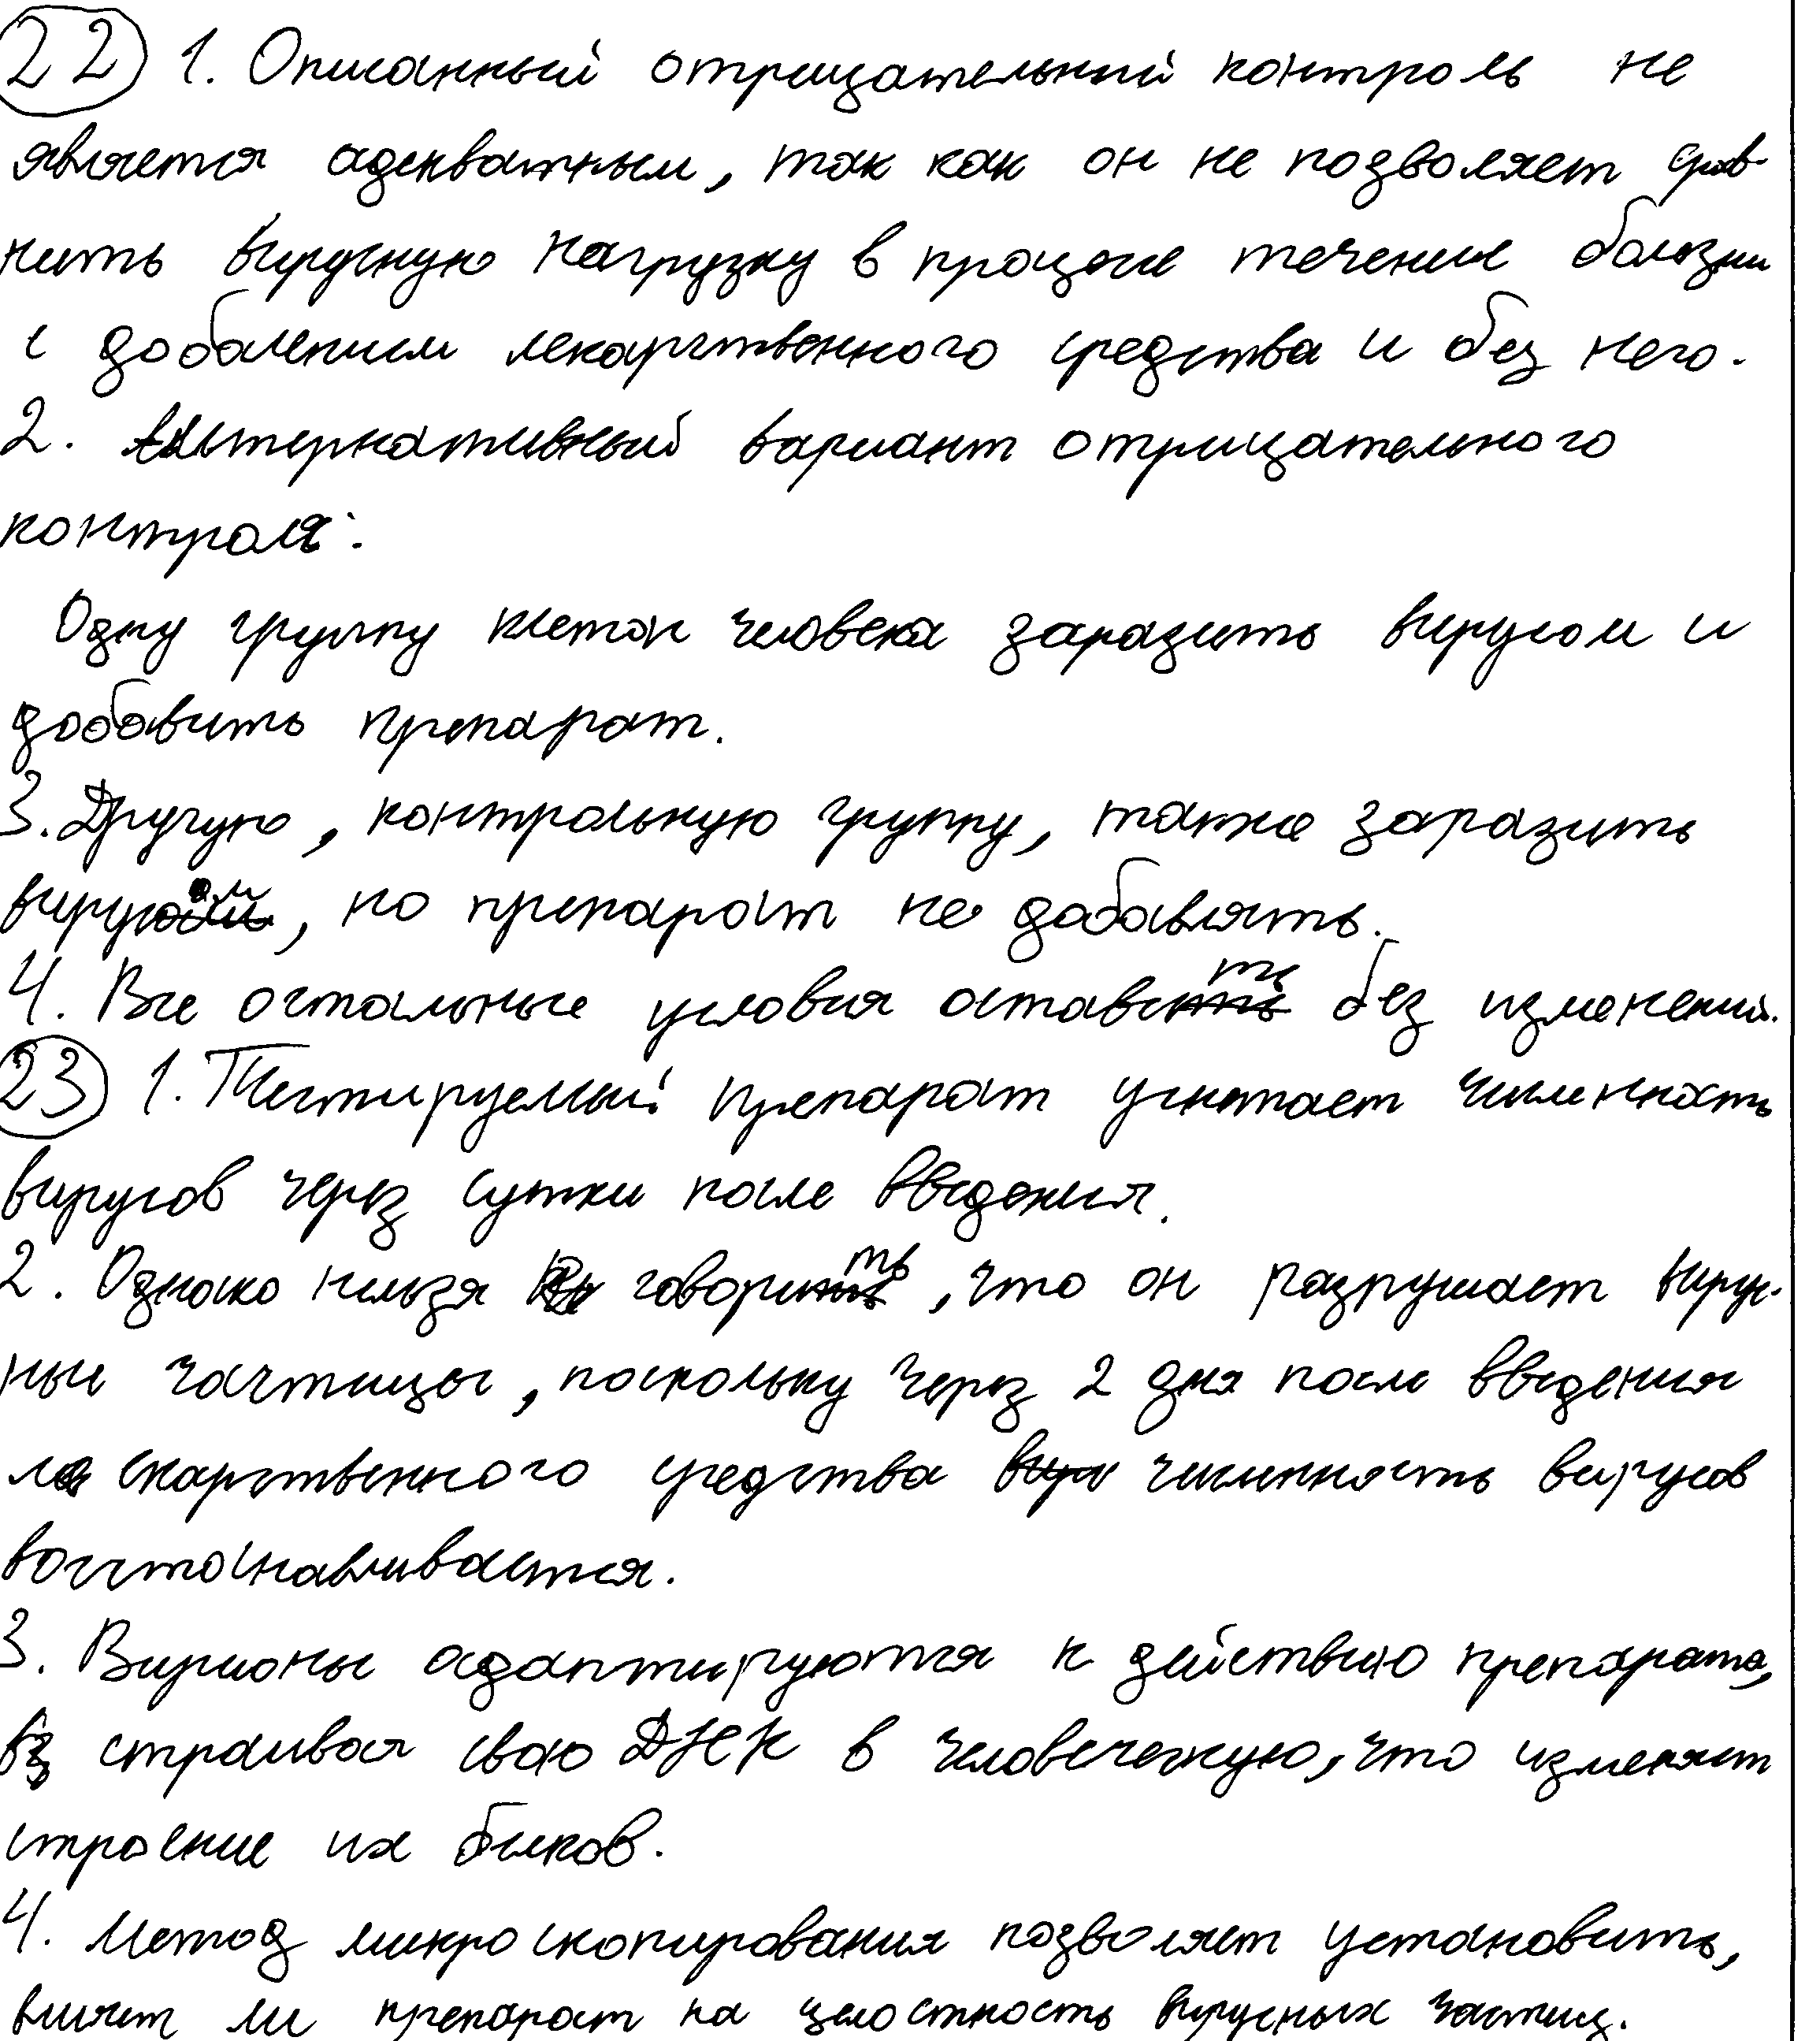 22 1. Описанный отрицательный контроль не
является адекватным, так как он не позволяет срав-
нить вирусную нагрузку в процессе течения болезни
с добавлением лекарственного средства и без него.
2. Альтернативный вариант отрицательного
контроля:
Одну группу клеток человека заразить вирусом и
добавить препарат.
3. Другую, контрольную группу, также заразить
вирусом, но препарат не добавлять.
4. Все остальные условия оставить без изменений.
23 1. Тестируемый препарат угнетает численность
вирусов через сутки после введения.
2. Однако нельзя говорить, что он разрушает вирус-
ные частицы, поскольку через 2 дня после введения
лекарственного средства численность вирусов
восстанавливается.
3. Вирионы адаптируются к действию препарата,
встраивая свою ДНК в человеческую, что изменяет
строение их белков.
4. Метод микроскопирования позволяет установить,
влияет ли препарат на целостность вирусных частиц.